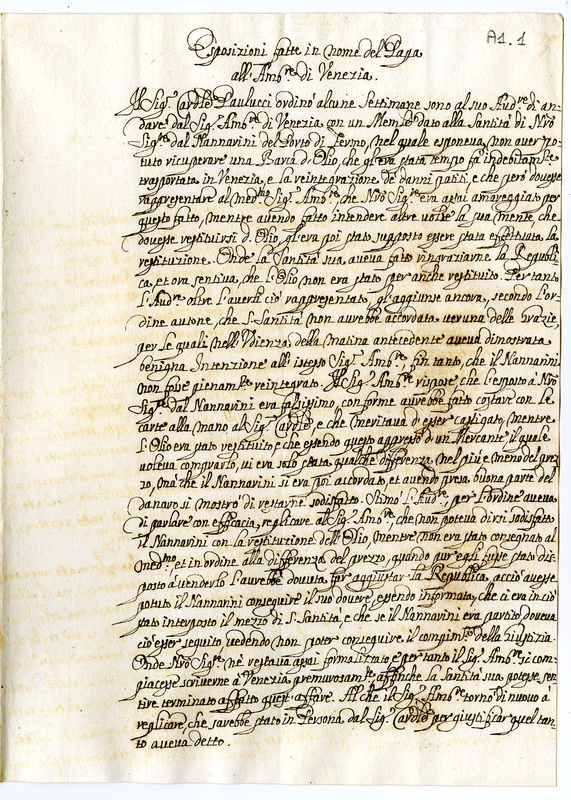 A1.1
Esposizioni fatte in nome del Papa
all'Amb.re di Venezia.
Il Sig.r Card.le Paulucci ordinò alcune settimane sono al suo Aud.re di an-
dare dal Sig.r Amb.re di Venezia con un Mem.le dato alla Santità di Nro
Sig.re dal Nannarini del Porto di Fermo, nel quale esponeva, non aver po-
tuto ricuperare una Barca d'Olio, che gl'era stata tempo fa indebitam.te
trasportata in Venezia, e la reintegrazione de danni patiti, e che però dovesse
rappresentare al med.mo Sig.r Amb.re, che Nro Sig.re era assai amareggiato per
questo fatto, mentre avendo fatto intendere altre volte la sua mente, che
dovesse restituirsi d. Olio, gl'era poi stato supposto essere stata effettuata la
restituzione. Onde la Santità sua, aveva fatto ringraziarne la Republi-
ca, et ora sentiva, che l'Olio non era stato per anche restituito. Per tanto
l'Aud.re oltre l'averli ciò rappresentato, gl'aggiunse ancora, secondo l'or-
dine avutone, che S. Santità non avrebbe accordata veruna delle Grazie,
per le quali nell'Udienza della matina antecedente aveva dimostrata
benigna Intenzione all'istesso Sig.r Amb.re, fin tanto, che il Nannarini
non fosse pienam.te reintegrato. Il Sig.r Amb.re rispose che l'esposto à Nro
Sig.re dal Nannarini era falsissimo, conforme avrebbe fatto costare con le
carte alla mano al Sig.r Card.le, e che meritava d'esser castigato, mentre
l'Olio era stato restituito, e che essendo questo appresso d'un Mercante, il quale
voleva comprarlo, vi era solo stata qualche differenza nel più e meno del prez-
zo, mà che il Nannarini si era poi accordato, et avendo presa buona parte del
danaro si mostrò di restarne sodisfatto. Stimò l'Aud.re, per l'ordine aveva
di parlare con efficacia, replicare al Sig.r Amb.re, che non poteva dirsi sodisfatto
il Nannarini con la restituzione dell'Olio, mentre non era stato consegnato al
med.mo, et in ordine alla differenza del prezzo, quando pur egli fosse stato dis-
posto à venderlo l'avrebbe dovuta far aggiustar la Republica, acciò avesse
potuto il Nannarini conseguire il suo dovere, essendo informata, che ci era in ciò
stato interposto il mezzo di S. Santità, e che se il Nannarini era partito, doveva
ciò esser seguito, vedendo non poter conseguire il compim.to della giustizia.
Onde Nro Sig.re ne restava assai formalizato, e per tanto il Sig.r Amb.re si com-
piacesse scriverne à Venezia premurosam.te affinche la Santità sua potesse sen-
tire terminato affatto quest'affare. Al che il Sig.r Amb.re tornò di nuovo à
replicare, che sarebbe stato in Persona dal Sig.r Card.le per giustificar quel tan-
to aveva detto.